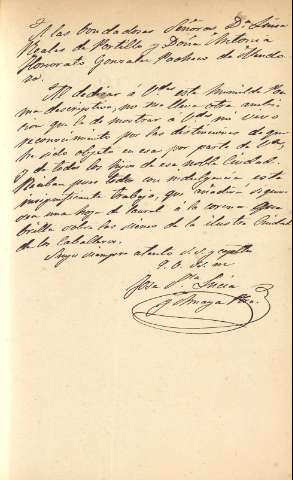 A las bondadosas Señoras Dª Luisa
Reales de Portillo y Doña Antonia
Honorato Gonzalez Pacheco de Mendo
za.
Al dedicar á Vdes este humilde Poe
ma descriptivo, no me lleva otra ambi
cion que la de mostrar á Vdes mi vivo
reconocimiento por las distinciones de que
he sido objeto en esa por parte de Vdes,
y de todos los hijos de esa noble Ciudad.
Reciban pues todos con indulgencia este
insignificante trabajo, que añadirá siquie
ra una hoja de laurel á la corona que
brilla sobre las sienes de la ilustre Ciudad
de los Caballeros.
Suyo siempre atento S. S. y capellan
Q. B. SS. M.
José Sta Lucía
y Amaya Pbro.